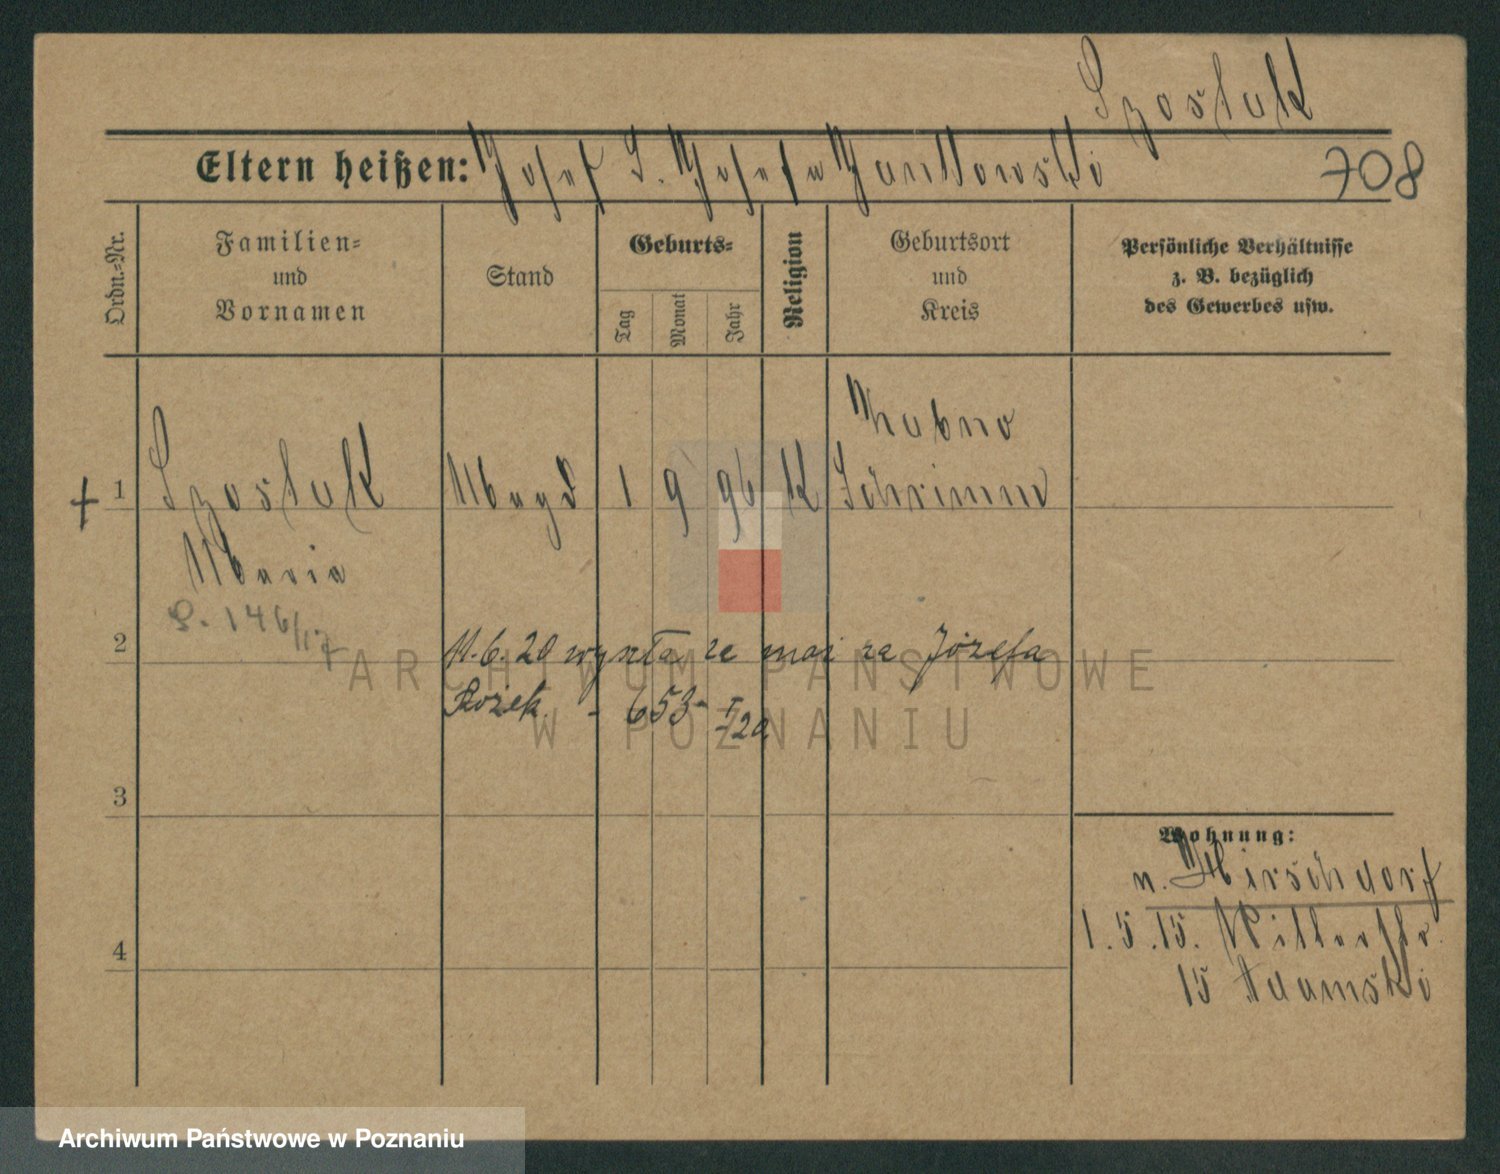 Szostak
Eltern heißen: Josef S. Josefa Jankowski
708
Ordn.-Nr.
Familien-
und
Vornamen
Stand
Geburts-
Tag
Monat
Jahr
Religion
Geburtsort
und
Kreis
Persönliche Verhältnisse
z. B. bezüglich
des Gewerbes usw.
+ 1 Szostak Magd 1 9 96 K
Schrimm
Maria
146/17
2
11.6.20 wyszła za mąż za Józefa
Rożek - 653-I/20
3
Wohnung:
n. Hirschdorf
1.5.15.
4
15 Adamski
ARCHIWUM PAŃSTWOWE
W POZNANIU
Archiwum Państwowe w Poznaniu